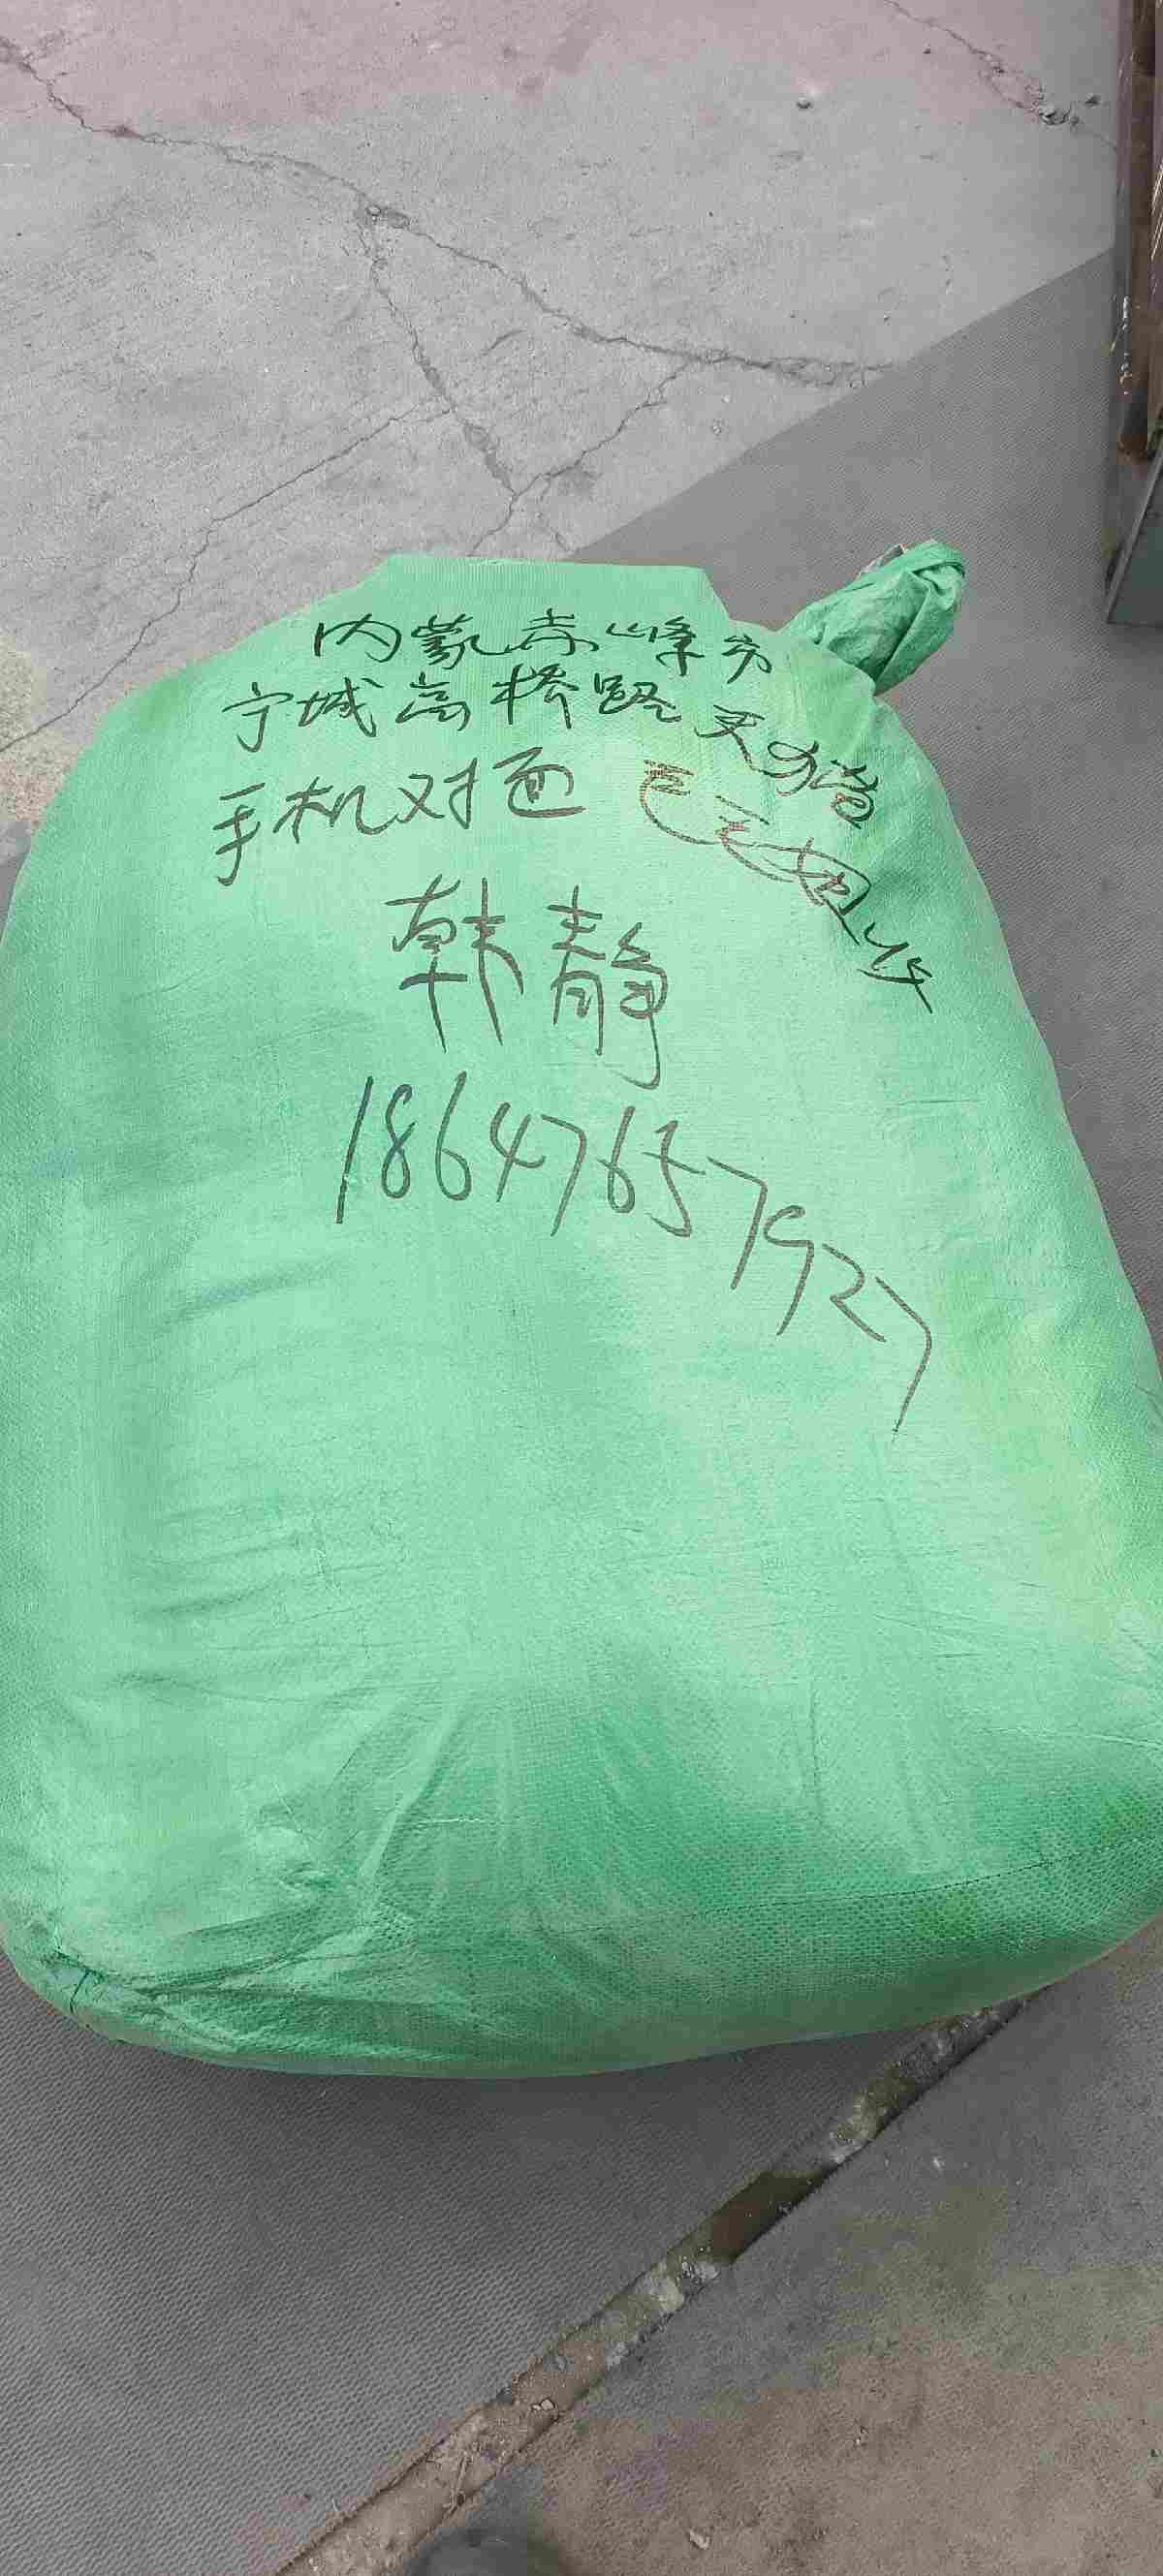 内蒙赤峰市
宁城高桥路天猫
手机对面
韩静
18647657927